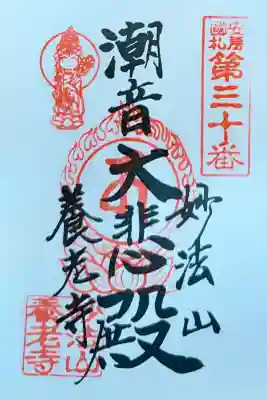 安房
國札
第三十番
妙法山
潮音大悲殿
養老寺
養老寺